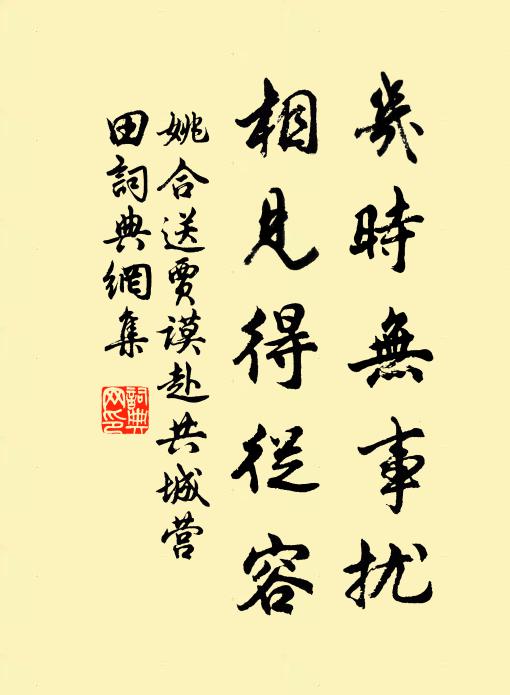 幾時無事扰
相見得從容
姚合送賈謨赴共城营
田詞典網集
詞典网印